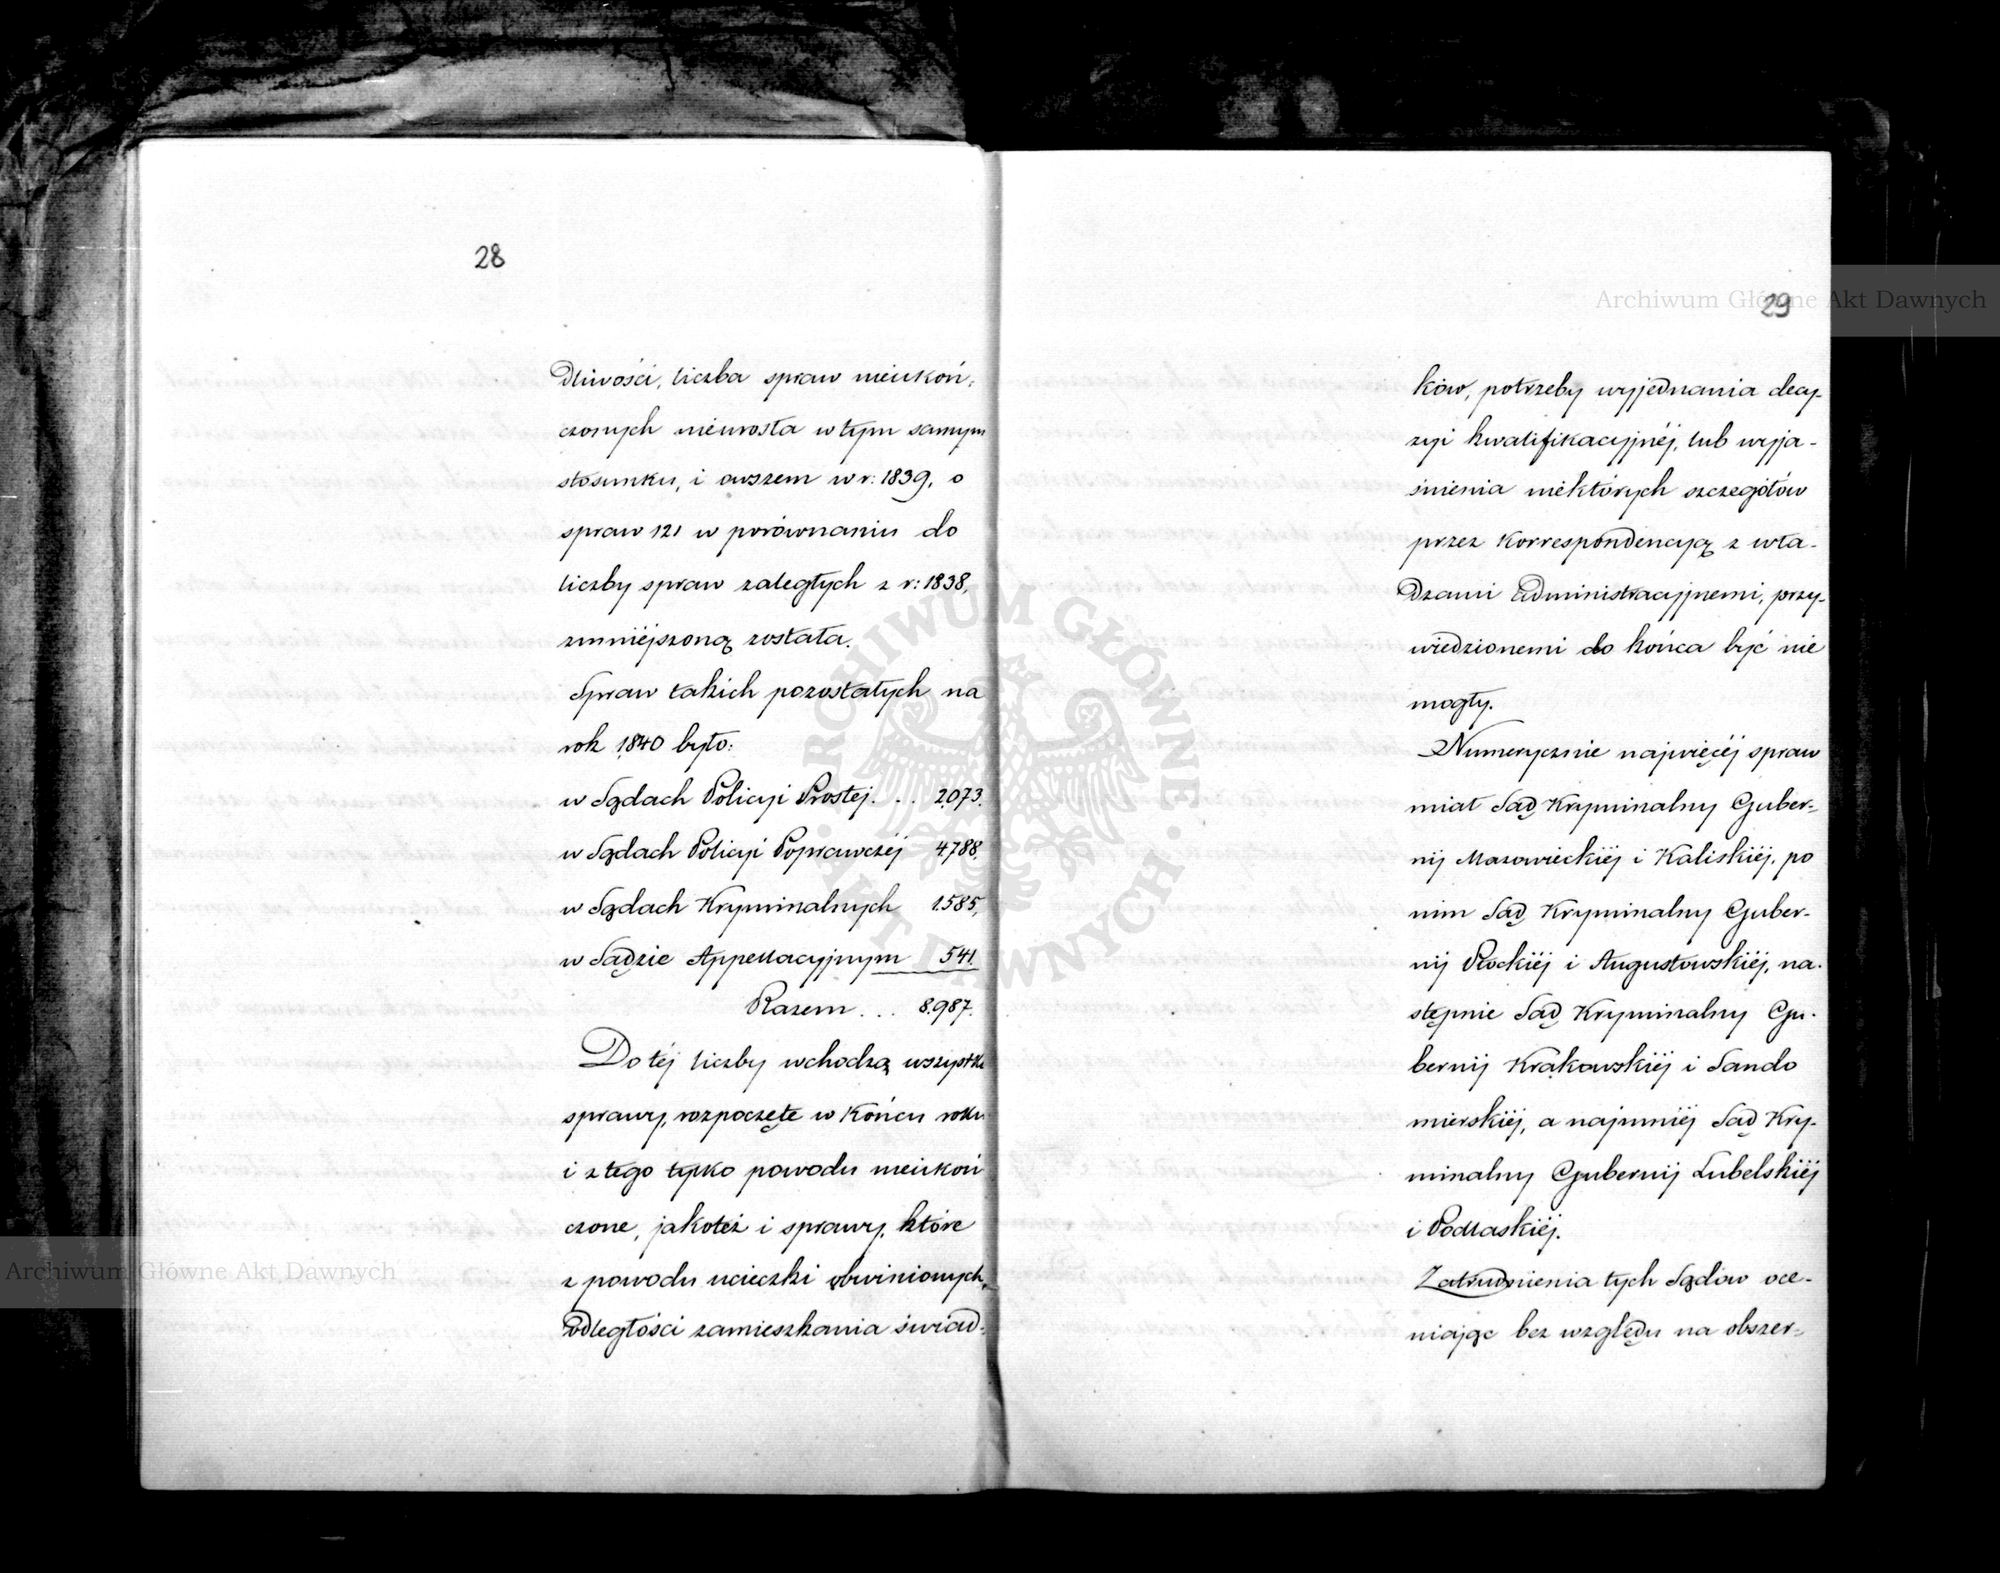 28
dliwości, liczba spraw nieukoń-
czonych nieurosła w tym samym
stosunku, i owszem w r: 1839, o
spraw 121 w porównaniu do
liczby spraw zaległych z r: 1838,
zmniejszoną została.
Spraw takich pozostałych na
rok 1840 było:
w Sądach Policyi Prostej . . . 2.073.
w Sądach Policyi Poprawczéj 4.788.
w Sądach Kryminalnych 1.585,
w Sądzie Appellacyjnym 541.
Razem . . . 8.987.
Do téj liczby wchodzą wszystkie
sprawy, rozpoczęte w końcu roku
i z tego tylko powodu nieukoń
czone, jakoteż i sprawy, które
z powodu ucieczki obwinionych,
odległości zamieszkania świad-
29
ków, potrzeby wyjednania decy-
zyi kwalifikacyjnéj, lub wyja-
śnienia niektórych szczegółów
przez korrespondencyją z wła-
dzami Administracyjnemi, przy-
wiedzionemi do końca być nie
mogły.
Numerycznie najwięcéj spraw
miał Sąd Kryminalny Guber-
nij Mazowieckiéj i Kaliskiéj, po
nim Sąd Kryminalny Guber-
nij Płockiéj i Augustowskiéj, na-
stępnie Sąd Kryminalny Gu-
bernij Krakowskiéj i Sando
mierskiéj, a najmniéj Sąd Kry-
minalny Gubernij Lubelskiéj
i Podlaskiéj.
Zatrudnienia tych Sądów oce-
niając bez względu na obszer-
Archiwum Główne Akt Dawnych
Archiwum Główne Akt Dawnych
ARCHIWUM GŁÓWNE · AKT DAWNYCH ·